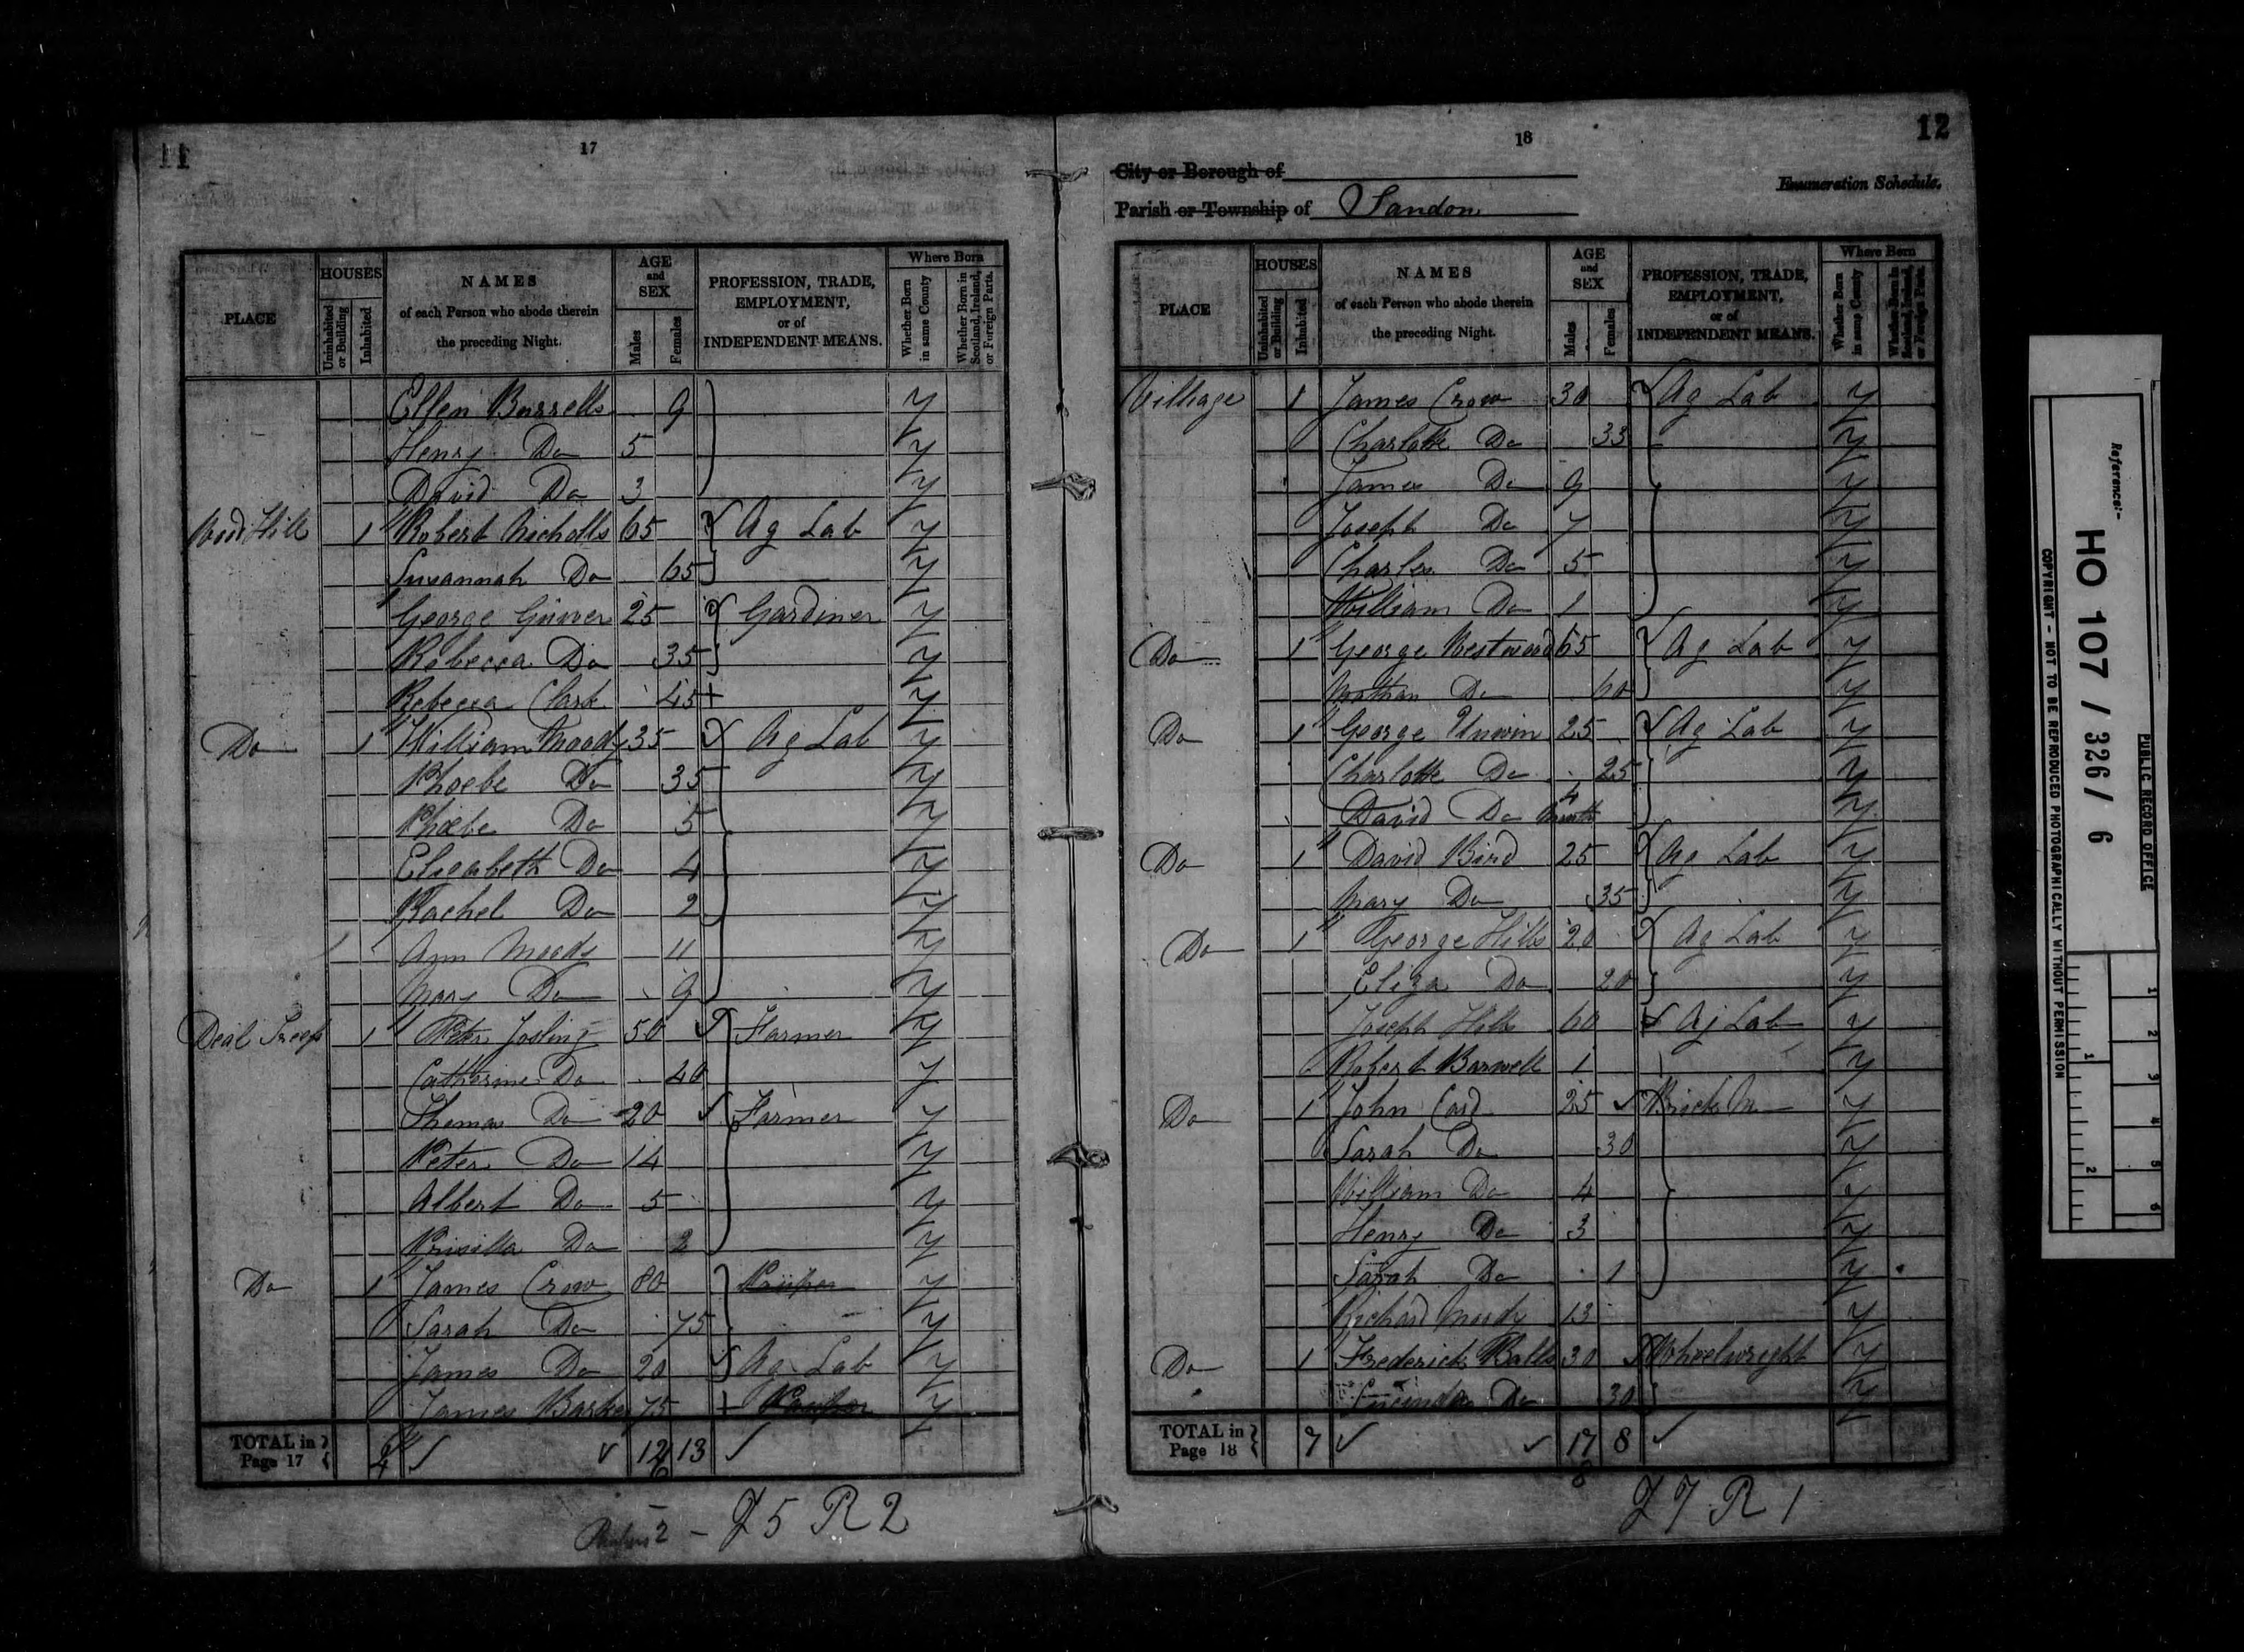 11
17
PLACE
HOUSES
Uninhabited or Building
Inhabited
NAMES
of each Person who abode therein
the preceding Night.
AGE
and
SEX
Males
Females
PROFESSION, TRADE,
EMPLOYMENT,
or of
INDEPENDENT MEANS.
Where Born
Whether Born in same County
Whether Born in Scotland, Ireland, or Foreign Parts.
Ellen Burrells 9 y
Henry Do 5 y
David Do 3 y
Hill 1 Robert Nicholls 65 Ag Lab y
Susannah Do 65 y
George 25 Gardiner y
Rebecca Do 35 y
Rebecca Clark 45 + y
Do 1 William Moody 35 Ag Lab y
Phoebe Do 35 y
Phoebe Do 5 y
Elizabeth Do 4 y
Rachel Do 2 y
Ann Moody 11 y
Mary Do 9 y
Deal 1 Peter Josling 50 Farmer y
Catherine Do 40 y
Thomas Do 20 Farmer y
Peter Do 14 y
Albert Do 5 y
Prisilla Do 2 y
Do 1 James Crow 80 Pauper y
Sarah Do 75 y
James Do 20 Ag Lab y
James Barker 75 + Pauper y
TOTAL in
Page 17 4 12 13
2 - 5 R 2
18
12
City or Borough of
Enumeration Schedule.
Parish or Township of Sandon
PLACE
HOUSES
Uninhabited or Building
Inhabited
NAMES
of each Person who abode therein
the preceding Night.
AGE
and
SEX
Males
Females
PROFESSION, TRADE,
EMPLOYMENT,
or of
INDEPENDENT MEANS.
Where Born
Whether Born in same County
Whether Born in Scotland, Ireland, or Foreign Parts.
Village 1 James Crow 30 Ag Lab y
Charlotte Do 33 y
James Do 9 y
Joseph Do 7 y
Charles Do 5 y
William Do 1 y
Do 1 George Westwood 65 Ag Lab y
Do 60 y
Do 1 George Unwin 25 Ag Lab y
Charlotte Do 25 y
David Do 4 Month y
Do 1 David Bird 25 Ag Lab y
Mary Do 35 y
Do 1 George Hills 20 Ag Lab y
Eliza Do 20 y
Joseph Hills 60 Ag Lab y
Robert Barwell 1 y
Do 1 John Card 25 Brick M y
Sarah Do 30 y
William Do 4 y
Henry Do 3 y
Sarah Do 1 y
Richard Moody 13 y
Do 1 Frederick Balls 30 Wheelwright y
Lucinda Do 30 y
TOTAL in
Page 18 7 17 8
7 R 1
PUBLIC RECORD OFFICE
Reference:-
HO 107 / 326 / 6
COPYRIGHT - NOT TO BE REPRODUCED PHOTOGRAPHICALLY WITHOUT PERMISSION